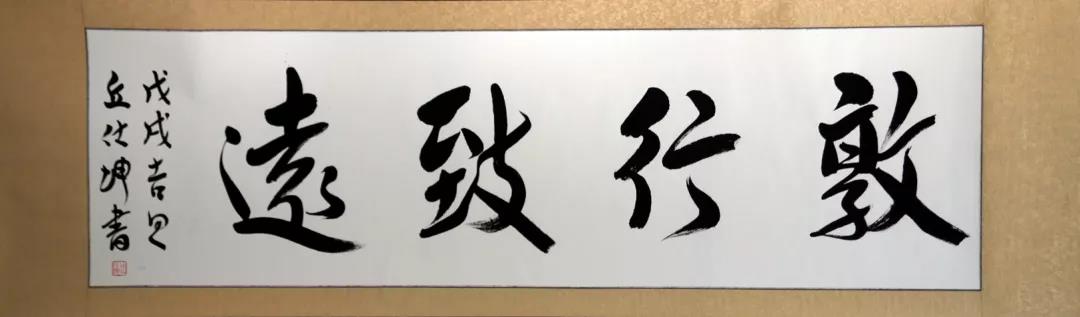 敦行致遠
戊戌吉日
丘仕坤書